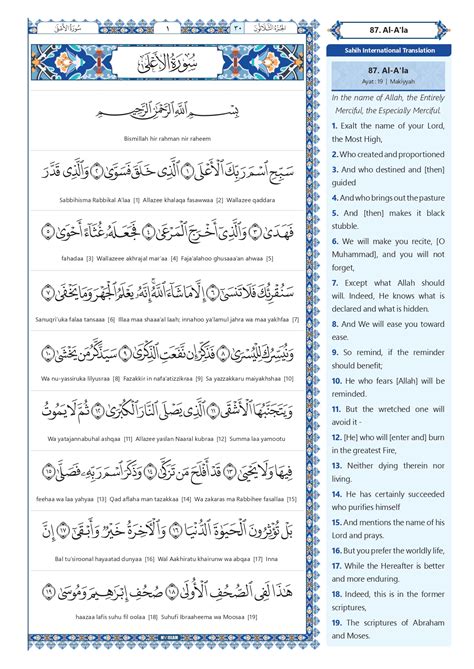 سورة الأعلى
١
٣٠
الجزء الثلاثون
سُورَةُ الأَعْلَىٰ
بِسْمِ اللَّهِ الرَّحْمَٰنِ الرَّحِيمِ
Bismillah hir rahman nir raheem
سَبِّحِ اسْمَ رَبِّكَ الْأَعْلَى ﴿١﴾ الَّذِي خَلَقَ فَسَوَّىٰ ﴿٢﴾ وَالَّذِي قَدَّرَ
Sabbihisma Rabbikal A'laa [1] Allazee khalaqa fasawwaa [2] Wallazee qaddara
فَهَدَىٰ ﴿٣﴾ وَالَّذِي أَخْرَجَ الْمَرْعَىٰ ﴿٤﴾ فَجَعَلَهُ غُثَاءً أَحْوَىٰ ﴿٥﴾
fahadaa [3] Wallazeee akhrajal mar'aa [4] Faja'alahoo ghusaaa'an ahwaa [5]
سَنُقْرِئُكَ فَلَا تَنسَىٰ ﴿٦﴾ إِلَّا مَا شَاءَ اللَّهُ إِنَّهُ يَعْلَمُ الْجَهْرَ وَمَا يَخْفَىٰ ﴿٧﴾
Sanuqri'uka falaa tansaaa [6] Illaa maa shaaa'al laah; innahoo ya'lamul jahra wa maa yakhfaa [7]
وَنُيَسِّرُكَ لِلْيُسْرَىٰ ﴿٨﴾ فَذَكِّرْ إِن نَّفَعَتِ الذِّكْرَىٰ ﴿٩﴾ سَيَذَّكَّرُ مَن يَخْشَىٰ ﴿١٠﴾
Wa nu-yassiruka lilyusraa [8] Fazakkir in nafa'atizzikraa [9] Sa yazzakkaru maiyakhshaa [10]
وَيَتَجَنَّبُهَا الْأَشْقَى ﴿١١﴾ الَّذِي يَصْلَى النَّارَ الْكُبْرَىٰ ﴿١٢﴾ ثُمَّ لَا يَمُوتُ
Wa yatajannabuhal ashqaa [11] Allazee yaslan Naaral kubraa [12] Summa laa yamootu
فِيهَا وَلَا يَحْيَىٰ ﴿١٣﴾ قَدْ أَفْلَحَ مَن تَزَكَّىٰ ﴿١٤﴾ وَذَكَرَ اسْمَ رَبِّهِ فَصَلَّىٰ ﴿١٥﴾
feehaa wa laa yahyaa [13] Qad aflaha man tazakkaa [14] Wa zakaras ma Rabbihee fasallaa [15]
بَلْ تُؤْثِرُونَ الْحَيَاةَ الدُّنْيَا ﴿١٦﴾ وَالْآخِرَةُ خَيْرٌ وَأَبْقَىٰ ﴿١٧﴾ إِنَّ
Bal tu'siroonal hayaatad dunyaa [16] Wal Aakhiratu khairunw wa abqaa [17] Inna
هَٰذَا لَفِي الصُّحُفِ الْأُولَىٰ ﴿١٨﴾ صُحُفِ إِبْرَاهِيمَ وَمُوسَىٰ ﴿١٩﴾
haazaa lafis suhu fil oolaa [18] Suhufi Ibraaheema wa Moosaa [19]
87. Al-A'la
Sahih International Translation
87. Al-A'la
Ayat : 19 | Makiyyah
In the name of Allah, the Entirely
Merciful, the Especially Merciful.
1. Exalt the name of your Lord,
the Most High,
2. Who created and proportioned
3. And who destined and [then]
guided
4. And who brings out the pasture
5. And [then] makes it black
stubble.
6. We will make you recite, [O
Muhammad], and you will not
forget,
7. Except what Allah should
will. Indeed, He knows what is
declared and what is hidden.
8. And We will ease you toward
ease.
9. So remind, if the reminder
should benefit;
10. He who fears [Allah] will be
reminded.
11. But the wretched one will
avoid it -
12. [He] who will [enter and] burn
in the greatest Fire,
13. Neither dying therein nor
living.
14. He has certainly succeeded
who purifies himself
15. And mentions the name of his
Lord and prays.
16. But you prefer the worldly life,
17. While the Hereafter is better
and more enduring.
18. Indeed, this is in the former
scriptures,
19. The scriptures of Abraham
and Moses.